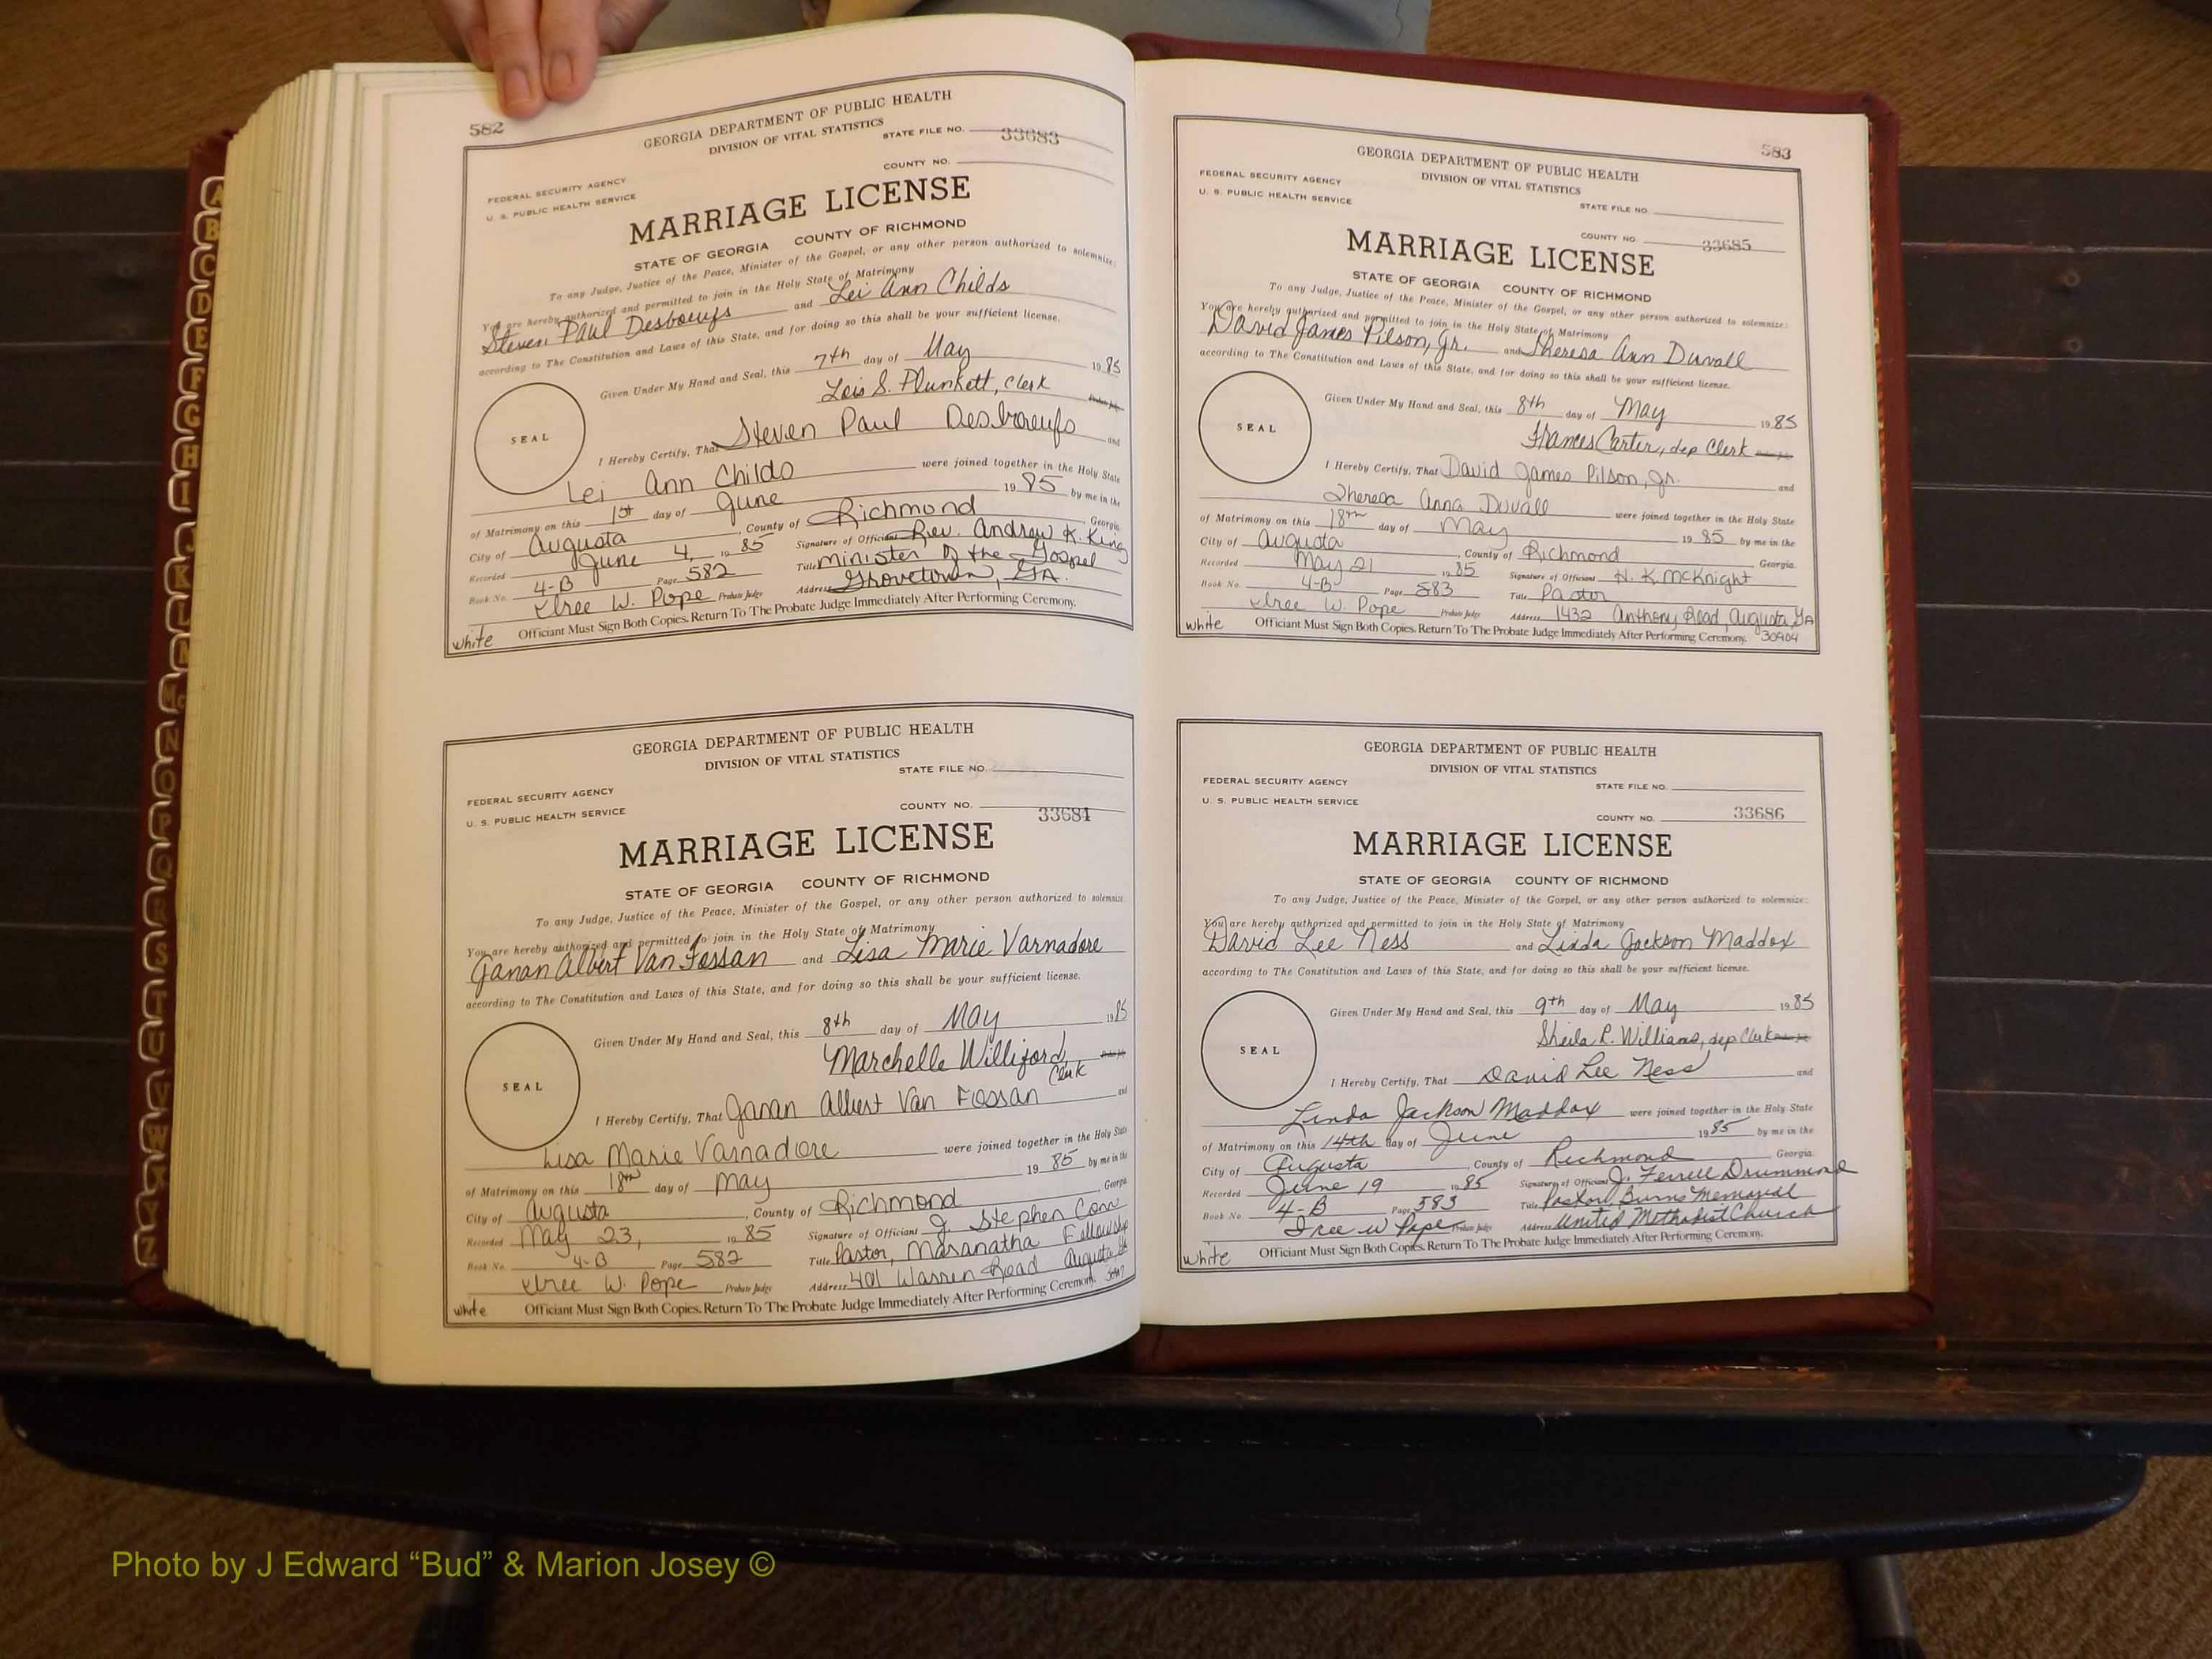 582
GEORGIA DEPARTMENT OF PUBLIC HEALTH
DIVISION OF VITAL STATISTICS
STATE FILE NO. 33683
COUNTY NO.
FEDERAL SECURITY AGENCY
U. S. PUBLIC HEALTH SERVICE
MARRIAGE LICENSE
STATE OF GEORGIA COUNTY OF RICHMOND
To any Judge, Justice of the Peace, Minister of the Gospel, or any other person authorized to solemnize:
You are hereby authorized and permitted to join in the Holy State of Matrimony
Steven Paul Desboeufs and Lei Ann Childs
according to The Constitution and Laws of this State, and for doing so this shall be your sufficient license.
Given Under My Hand and Seal, this 7th day of May 1985
Lois S. Plunkett, Clerk
SEAL
I Hereby Certify, That Steven Paul Desboeufs and
Lei Ann Childs were joined together in the Holy State
of Matrimony on this 1st day of June 1985 by me in the
City of Augusta, County of Richmond Georgia
Recorded June 4, 1985 Signature of Official Rev. Andrew K. King
Book No. 4-B Page 582 Title Minister of the Gospel
Iree W. Pope Probate Judge Address Grovetown, GA.
white Officiant Must Sign Both Copies. Return To The Probate Judge Immediately After Performing Ceremony.
GEORGIA DEPARTMENT OF PUBLIC HEALTH
DIVISION OF VITAL STATISTICS
STATE FILE NO.
FEDERAL SECURITY AGENCY
U. S. PUBLIC HEALTH SERVICE
COUNTY NO. 33684
MARRIAGE LICENSE
STATE OF GEORGIA COUNTY OF RICHMOND
To any Judge, Justice of the Peace, Minister of the Gospel, or any other person authorized to solemnize:
You are hereby authorized and permitted to join in the Holy State of Matrimony
Janan Albert Van Fossan and Lisa Marie Varnadore
according to The Constitution and Laws of this State, and for doing so this shall be your sufficient license.
Given Under My Hand and Seal, this 8th day of May 1985
Marchelle Williford, Clerk
SEAL
I Hereby Certify, That Janan Albert Van Fossan and
Lisa Marie Varnadore were joined together in the Holy State
of Matrimony on this 18th day of May 1985 by me in the
City of Augusta, County of Richmond Georgia
Recorded May 23, 1985 Signature of Official J. Stephen Conn
Book No. 4-B Page 582 Title Pastor, Maranatha Fellowship
Iree W. Pope Probate Judge Address 401 Warren Road Augusta GA
white Officiant Must Sign Both Copies. Return To The Probate Judge Immediately After Performing Ceremony.
583
GEORGIA DEPARTMENT OF PUBLIC HEALTH
DIVISION OF VITAL STATISTICS
FEDERAL SECURITY AGENCY
U. S. PUBLIC HEALTH SERVICE
STATE FILE NO.
COUNTY NO. 33685
MARRIAGE LICENSE
STATE OF GEORGIA COUNTY OF RICHMOND
To any Judge, Justice of the Peace, Minister of the Gospel, or any other person authorized to solemnize:
You are hereby authorized and permitted to join in the Holy State of Matrimony
David James Pilson, Jr. and Theresa Ann Duvall
according to The Constitution and Laws of this State, and for doing so this shall be your sufficient license.
Given Under My Hand and Seal, this 8th day of May 1985
Frances Carter, dep Clerk
SEAL
I Hereby Certify, That David James Pilson, Jr. and
Theresa Anna Duvall were joined together in the Holy State
of Matrimony on this 18th day of May 1985 by me in the
City of Augusta, County of Richmond Georgia.
Recorded May 21 1985 Signature of Official H. K. McKnight
Book No. 4-B Page 583 Title Pastor
Iree W. Pope Probate Judge Address 1432 Anthony Road, Augusta, GA
white Officiant Must Sign Both Copies. Return To The Probate Judge Immediately After Performing Ceremony. 30904
GEORGIA DEPARTMENT OF PUBLIC HEALTH
DIVISION OF VITAL STATISTICS
FEDERAL SECURITY AGENCY
STATE FILE NO.
U. S. PUBLIC HEALTH SERVICE
COUNTY NO. 33686
MARRIAGE LICENSE
STATE OF GEORGIA COUNTY OF RICHMOND
To any Judge, Justice of the Peace, Minister of the Gospel, or any other person authorized to solemnize:
You are hereby authorized and permitted to join in the Holy State of Matrimony
David Lee Ness and Linda Jackson Maddox
according to The Constitution and Laws of this State, and for doing so this shall be your sufficient license.
Given Under My Hand and Seal, this 9th day of May 1985
Sheila R. Williams, dep Clerk
SEAL
I Hereby Certify, That David Lee Ness and
Linda Jackson Maddox were joined together in the Holy State
of Matrimony on this 14th day of June 1985 by me in the
City of Augusta, County of Richmond Georgia
Recorded June 19 1985 Signature of Official J. Ferrell Drummond
Book No. 4-B Page 583 Title Pastor, Burns Memorial
Iree W Pope Probate Judge Address United Methodist Church
white Officiant Must Sign Both Copies. Return To The Probate Judge Immediately After Performing Ceremony.
A
B
C
D
E
F
G
H
I
J
K
L
M
Mc
N
O
P
Q
R
S
T
U
V
W
Y
Z
Photo by J Edward “Bud” & Marion Josey ©